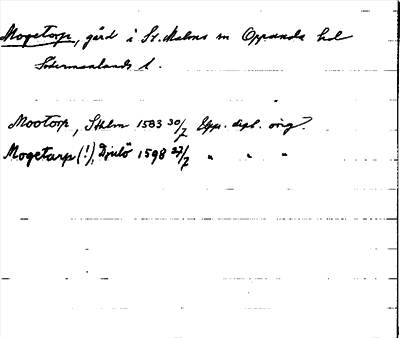 Mogetorp, gård i St. Malms sn Oppunda hd
Södermanlands l.
Mootorp, Sthlm 1583 30/7 Epp. dipl. orig?
Mogetarp (!), Djulö 1598 27/7 " " "